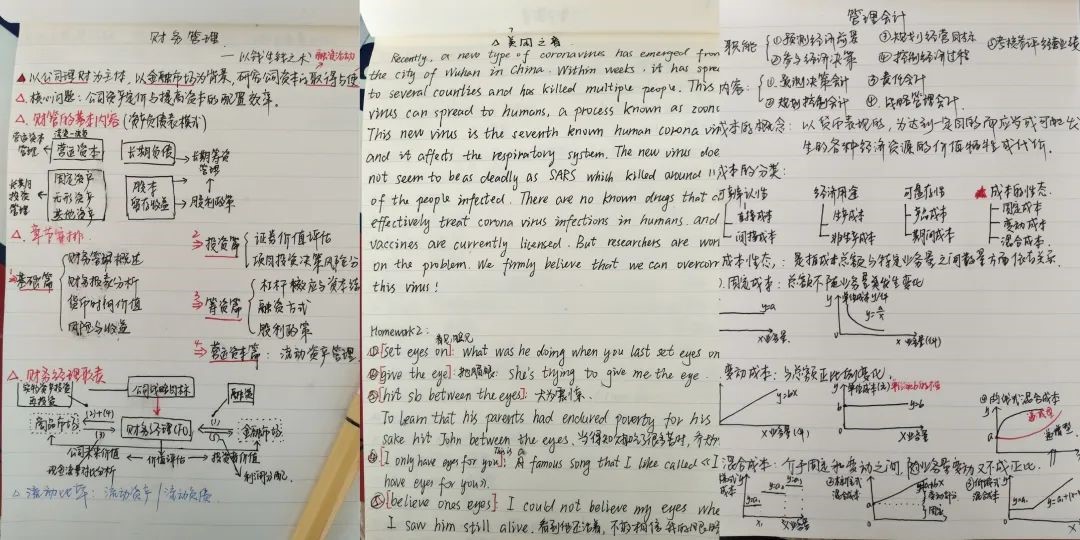 财务管理
—以钱生钱之术 融资活动
▲以公司理财为主体,以金融市场为背景,研究公司资本的取得与使
△.核心问题:公司资产定价与提高资本的配置效率.
△.财管的基本内容(资产负债表模式)
营运资本管理 流资-流负
营运资本 长期负债
长期筹资管理
长期投资管理
固定资产 无形资产 其他资产
股本 留存收益
股利政策
△.章节安排.
1 基础篇
财务管理概述
财务报表分析
货币时间价值
风险与收益
2 投资篇
证券价值评估
项目投资决策风险分
3 筹资篇
杠杆效应与资本结
融资方式
股利政策
4 营运资本篇:流动资产管理
△.财务经理职责
公司战略目标
(2)+(4)
商品市场 (3) 财务经理CFO (1) 金融市场
价值评估
利润分配.
△流动比率:流动资产/流动负债
7
△美国之音
Recently, a new type of coronavirus has emerged from
the city of Wuhan in China. Within weeks, it has spre
to several countries and has killed multiple people. This
virus can spread to humans, a process known as zoono
This new virus is the seventh known human corona vir
and it affects the respiratory system. The new virus doe
not seem to be as deadly as SARS which killed around 11
of the people infected. There are no known drugs that c
effectively treat corona virus infections in humans. and
vaccines are currently licensed. But researchers are wor
on the problem. We firmly believe that we can overcom
this virus!
Homework2: 看见,眼见
①[set eyes on]: what was he doing when you last set eyes on
②[give the eye]: She's trying to give me the eye.
③[hit sb between the eyes]: 大为震惊.
To learn that his parents had endured poverty for his
sake hit John between the eyes.
④[I only have eyes for you]: This is a A famous song that I like called 《I
have eyes for you》.
⑤[believe ones eyes] I could not believe my eyes whe
I saw him still alive. 看到他还活着,不敢相信
管理会计
职能
①预测经济前景 ③规划经营目标 ⑤考核评价经营业绩
②参与经济决策 ④控制经济过程
内容:
①预测决策会计 ③责任会计
②规划控制会计 ④战略管理会计.
成本的概念:以货币表现的,为达到一定目的而应当或可能发
生的各种经济资源的价值牺牲或代价.
成本的分类:
可辨认性 经济用途 可盘存性 ★成本的性态.
直接成本 生产成本 产品成本 固定成本
间接成本 非生产成本 期间成本 变动成本
混合成本.
成本性态:是指成本总额与特定业务量之间数量方面依存关系.
固定成本:总额不随业务量变发生变化
y=a
x业务量
y y=a/x
x业务量(件)
变动成本:与总额正比例变化,
y=bx
x业务量(件)
y=b
b
x业务量
a
混合成本:介于固定和变动之间,随业务量变动又不成正比.
y=a+bx
变动部分
固定